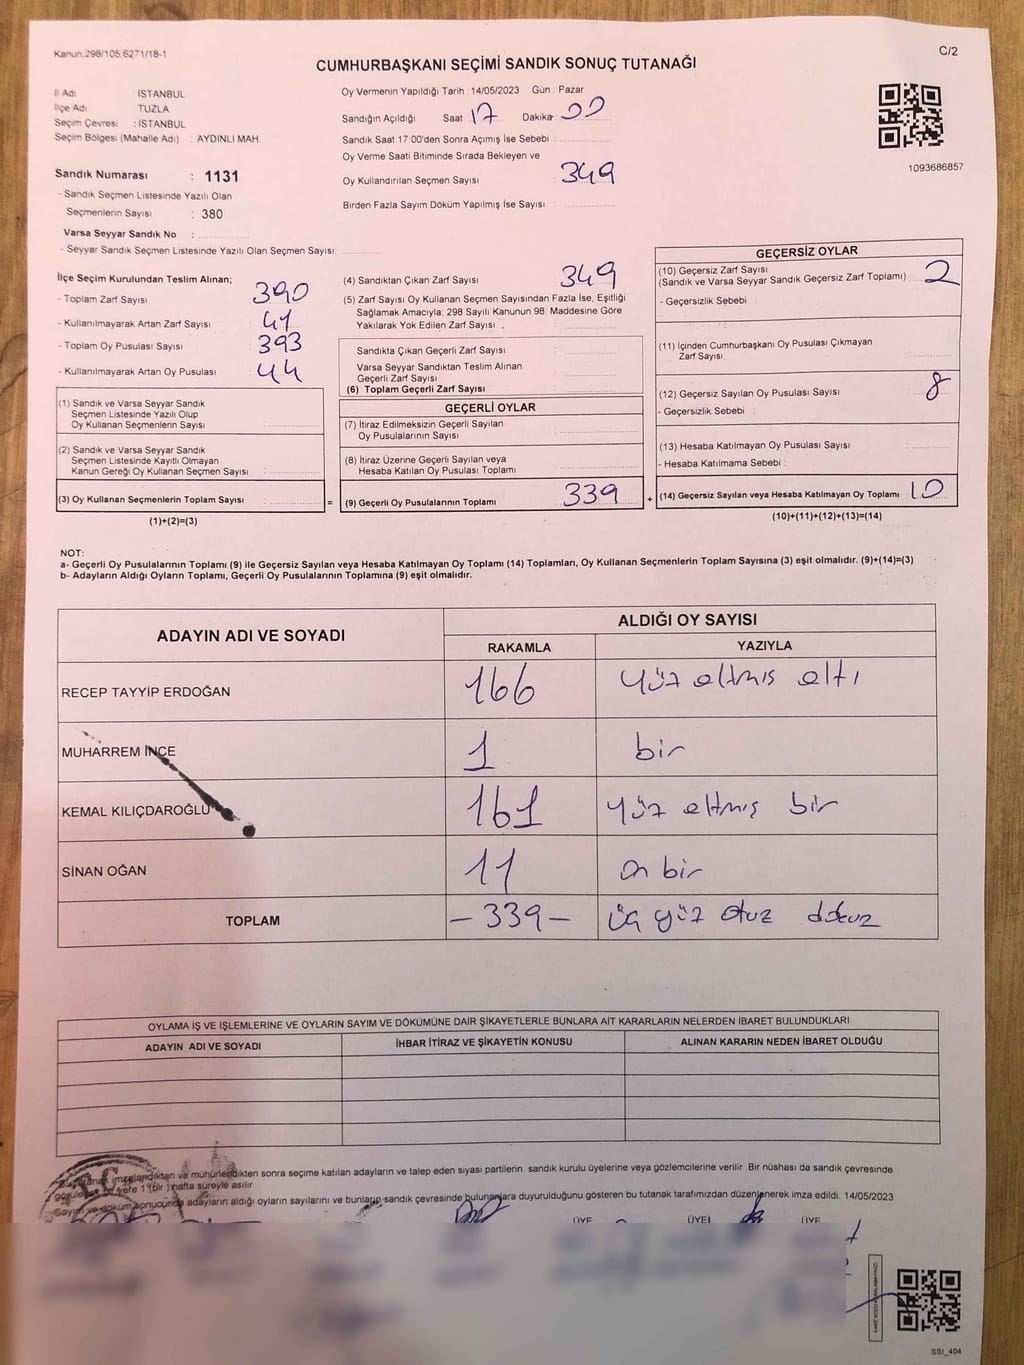 Kanun.298/105,6271/18-1
C/2
CUMHURBAŞKANI SEÇİMİ SANDIK SONUÇ TUTANAĞI
İl Adı : İSTANBUL
İlçe Adı : TUZLA
Seçim Çevresi : İSTANBUL
Seçim Bölgesi (Mahalle Adı) : AYDINLI MAH.
Sandık Numarası : 1131
- Sandık Seçmen Listesinde Yazılı Olan
Seçmenlerin Sayısı : 380
Varsa Seyyar Sandık No :
- Seyyar Sandık Seçmen Listesinde Yazılı Olan Seçmen Sayısı:
Oy Vermenin Yapıldığı Tarih : 14/05/2023 Gün : Pazar
Sandığın Açıldığı Saat 17 Dakika 00
Sandık Saat 17:00'den Sonra Açımış İse Sebebi :
Oy Verme Saati Bitiminde Sırada Bekleyen ve
Oy Kullandırılan Seçmen Sayısı : 349
Birden Fazla Sayım Döküm Yapılmış İse Sayısı :
1093686857
İlçe Seçim Kurulundan Teslim Alınan;
- Toplam Zarf Sayısı : 390
- Kullanılmayarak Artan Zarf Sayısı : 41
- Toplam Oy Pusulası Sayısı : 393
- Kullanılmayarak Artan Oy Pusulası : 44
(1) Sandık ve Varsa Seyyar Sandık
Seçmen Listesinde Yazılı Olup
Oy Kullanan Seçmenlerin Sayısı :
(2) Sandık ve Varsa Seyyar Sandık
Seçmen Listesinde Kayıtlı Olmayan
Kanun Gereği Oy Kullanan Seçmen Sayısı :
(3) Oy Kullanan Seçmenlerin Toplam Sayısı :
(1)+(2)=(3)
=
(4) Sandıktan Çıkan Zarf Sayısı : 349
(5) Zarf Sayısı Oy Kullanan Seçmen Sayısından Fazla İse, Eşitliği
Sağlamak Amacıyla; 298 Sayılı Kanunun 98. Maddesine Göre
Yakılarak Yok Edilen Zarf Sayısı :
Sandıkta Çıkan Geçerli Zarf Sayısı :
Varsa Seyyar Sandıktan Teslim Alınan
Geçerli Zarf Sayısı :
(6) Toplam Geçerli Zarf Sayısı :
GEÇERLİ OYLAR
(7) İtiraz Edilmeksizin Geçerli Sayılan
Oy Pusulalarının Sayısı :
(8) İtiraz Üzerine Geçerli Sayılan veya
Hesaba Katılan Oy Pusulası Toplamı :
(9) Geçerli Oy Pusulalarının Toplamı : 339
+
GEÇERSİZ OYLAR
(10) Geçersiz Zarf Sayısı
(Sandık ve Varsa Seyyar Sandık Geçersiz Zarf Toplamı) : 2
- Geçersizlik Sebebi :
(11) İçinden Cumhurbaşkanı Oy Pusulası Çıkmayan
Zarf Sayısı :
(12) Geçersiz Sayılan Oy Pusulası Sayısı : 8
- Geçersizlik Sebebi :
(13) Hesaba Katılmayan Oy Pusulası Sayısı :
- Hesaba Katılmama Sebebi :
(14) Geçersiz Sayılan veya Hesaba Katılmayan Oy Toplamı : 10
(10)+(11)+(12)+(13)=(14)
NOT:
a- Geçerli Oy Pusulalarının Toplamı (9) ile Geçersiz Sayılan veya Hesaba Katılmayan Oy Toplamı (14) Toplamları, Oy Kullanan Seçmenlerin Toplam Sayısına (3) eşit olmalıdır. (9)+(14)=(3)
b- Adayların Aldığı Oyların Toplamı, Geçerli Oy Pusulalarının Toplamına (9) eşit olmalıdır.
ADAYIN ADI VE SOYADI
ALDIĞI OY SAYISI
RAKAMLA YAZIYLA
RECEP TAYYİP ERDOĞAN 166 yüz altmış altı
MUHARREM İNCE 1 bir
KEMAL KILIÇDAROĞLU 161 yüz altmış bir
SİNAN OĞAN 11 on bir
TOPLAM - 339 - üç yüz otuz dokuz
OYLAMA İŞ VE İŞLEMLERİNE VE OYLARIN SAYIM VE DÖKÜMÜNE DAİR ŞİKAYETLERLE BUNLARA AİT KARARLARIN NELERDEN İBARET BULUNDUKLARI
ADAYIN ADI VE SOYADI İHBAR İTİRAZ VE ŞİKAYETİN KONUSU ALINAN KARARIN NEDEN İBARET OLDUĞU
imzalandıktan ve mühürlendikten sonra seçime katılan adayların ve talep eden siyasi partilerin sandık kurulu üyelerine veya gözlemcilerine verilir. Bir nüshası da sandık çevresinde
bir yere 1 (bir) hafta süreyle asılır
Sayım ve döküm sonucunda adayların aldığı oyların sayılarını ve bunların sandık çevresinde bulunanlara duyurulduğunu gösteren bu tutanak tarafımızdan düzenlenerek imza edildi. 14/05/2023
ÜYE ÜYE ÜYE
SSI_404